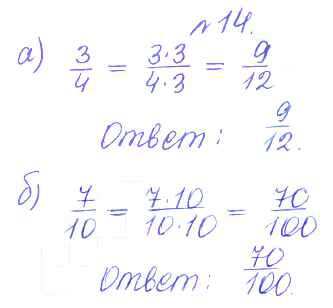 №14.
а) 3/4 = 3·3/4·3 = 9/12
Ответ: 9/12.
б) 7/10 = 7·10/10·10 = 70/100
Ответ: 70/100.